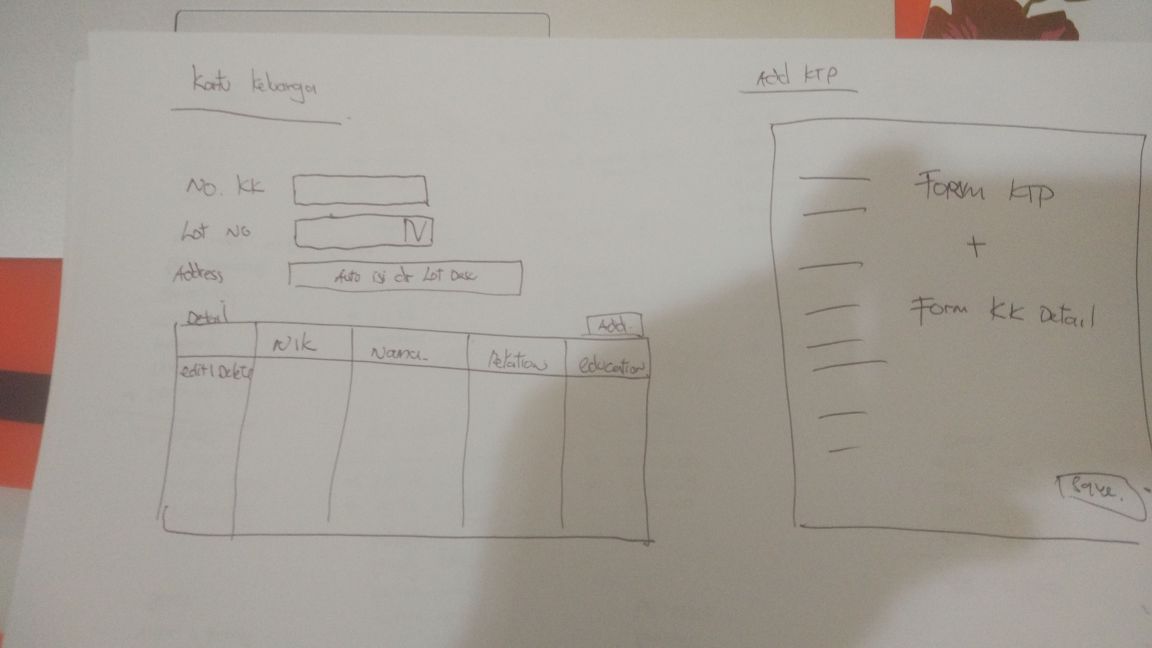 Kartu Keluarga
No. KK
Lot No
Address
Auto isi dr Lot Desc
Detail
Add.
NIK
Nama
Relation
education
edit | Delete
Add KTP
Form KTP
+
Form KK Detail
Save.